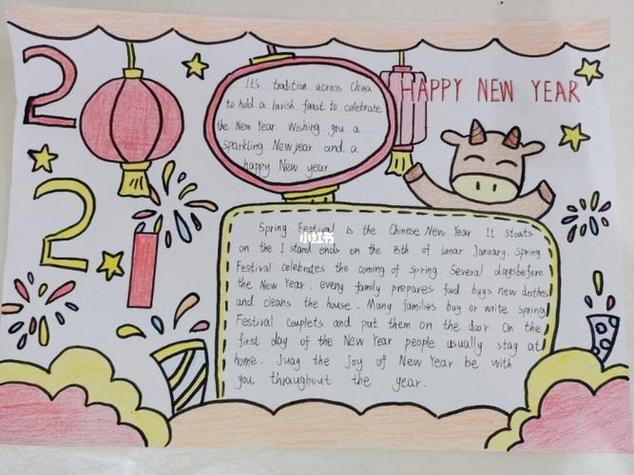 2021
HAPPY NEW YEAR
It's tradition across China
to hold a lavish feast to celebrate
the New Year Wishing you a
sparkling New year and a
happy New year
Spring Festival is the Chinese New Year. It starts
on the 1st and ends on the 15th of lunar January. Spring
Festival celebrates the coming of spring. Several days before
the New Year. eveny family prepares food bugs new clothes
and cleans the house. Many families bug or write spring
Festival couplets and put them on the door. On the
first day of the New Year people usually stay at
home. Juag the Joy of New Year be with
you throughout the year.
小红书